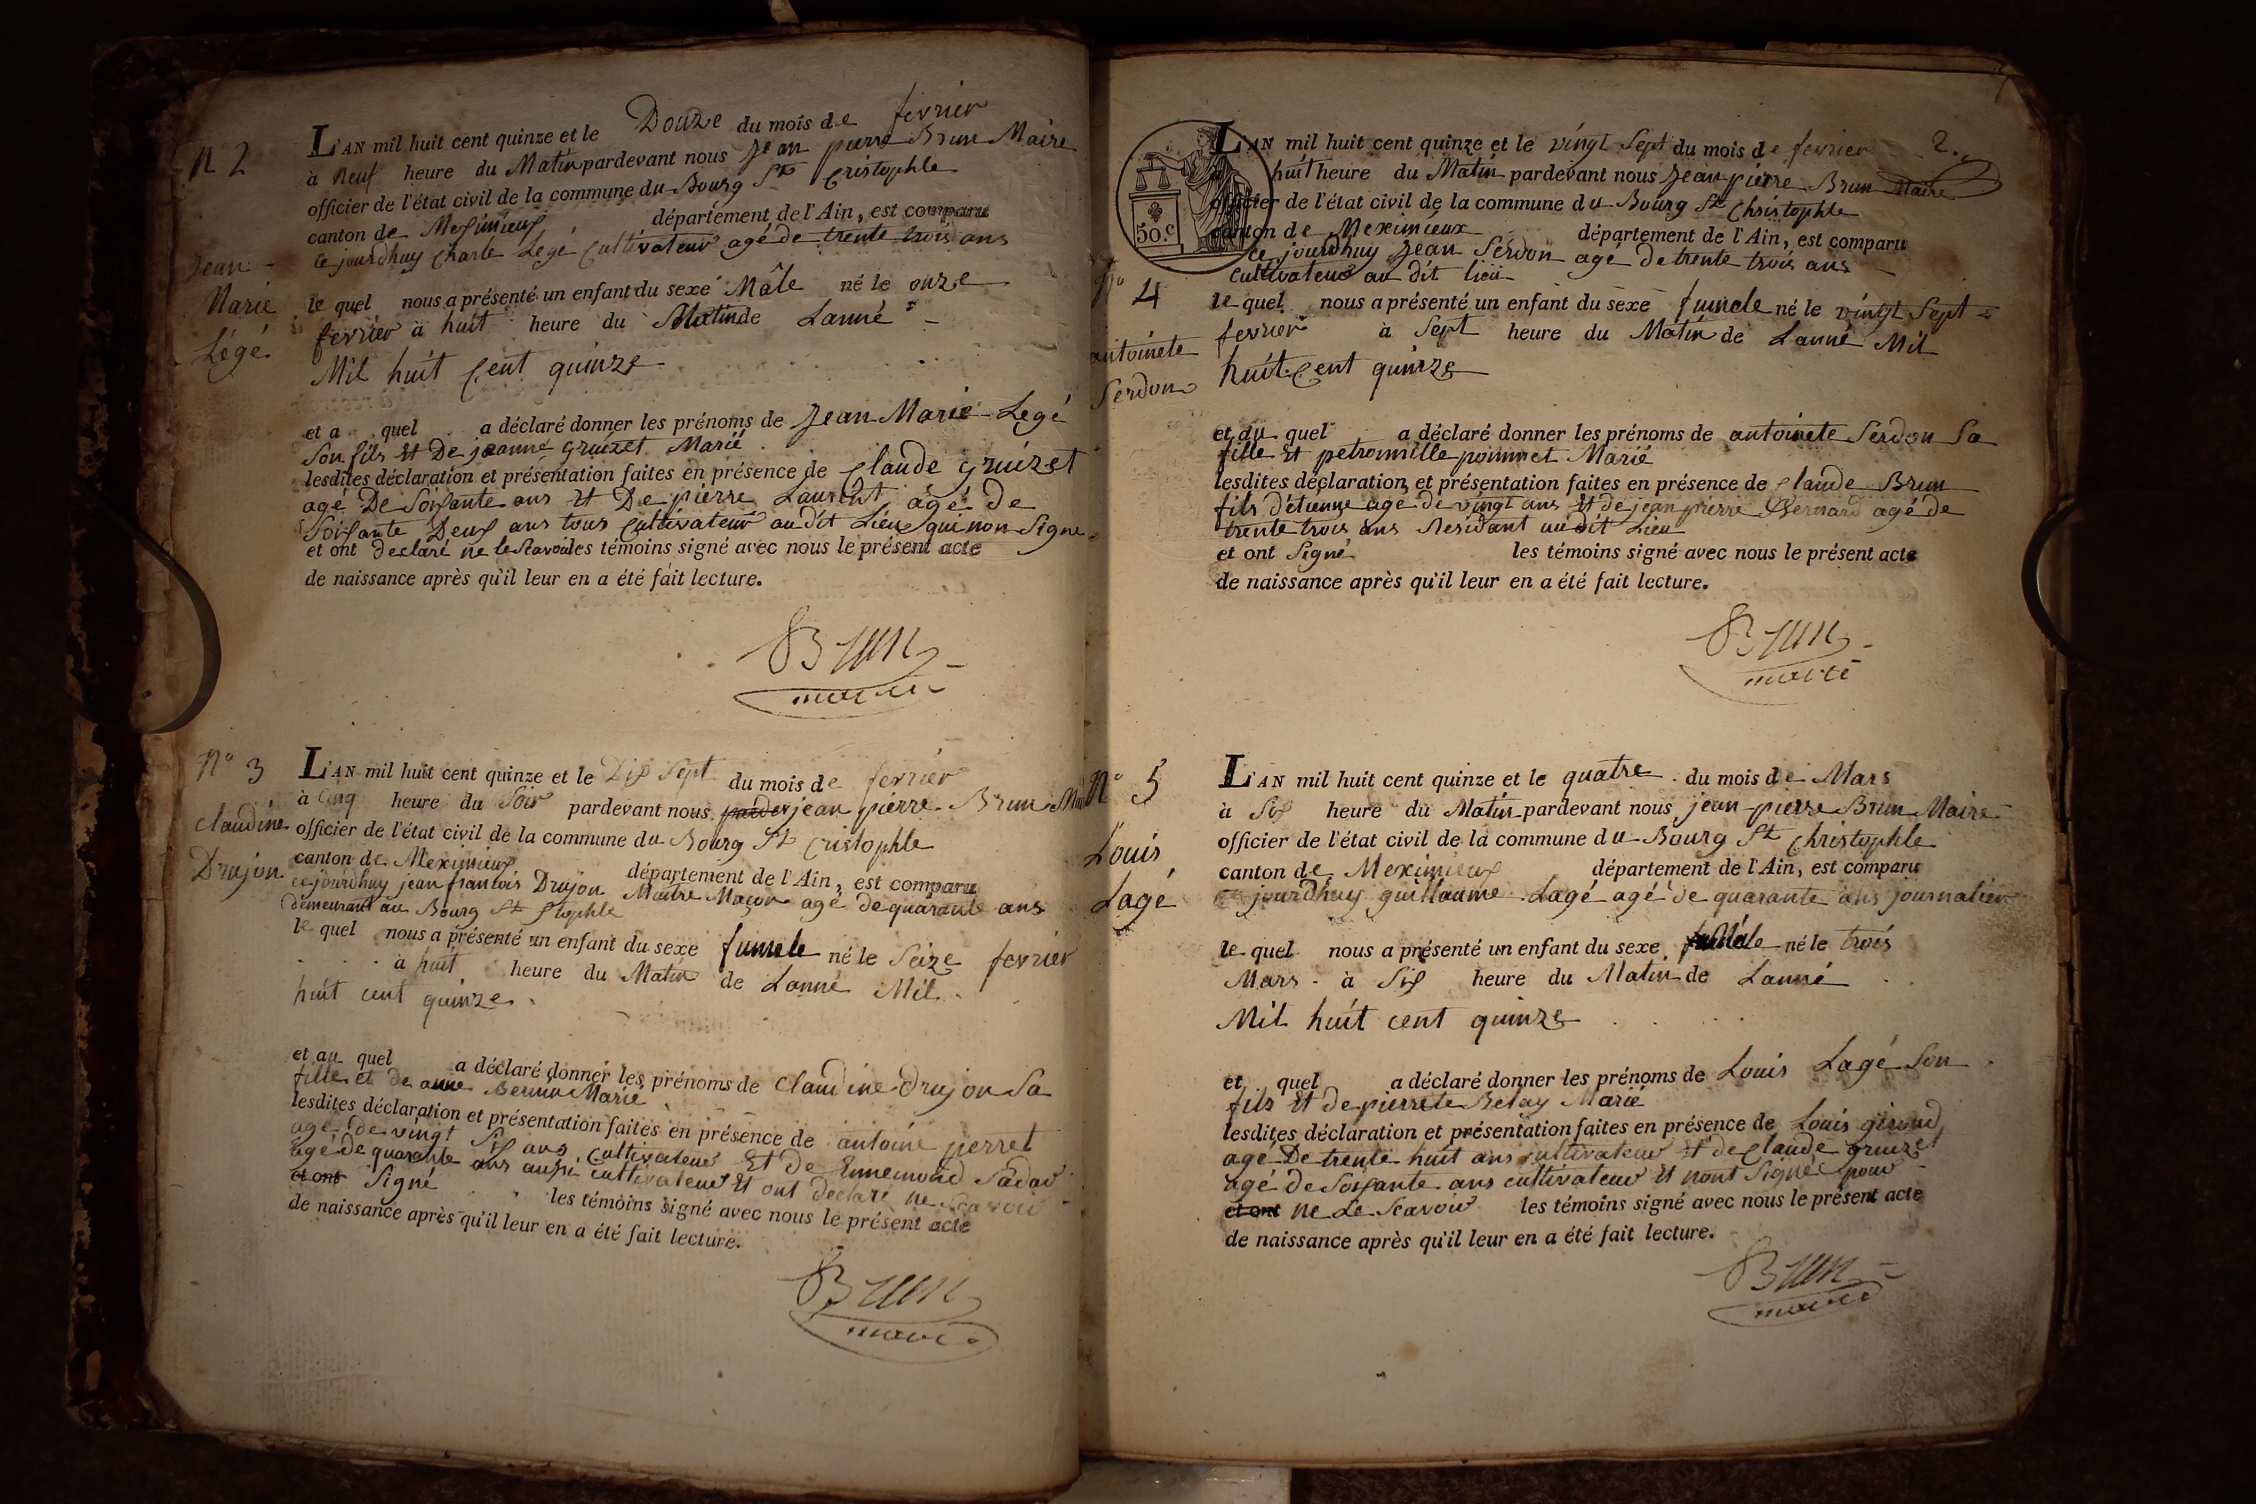 N 2
Jean
Marie
Légé
L'AN mil huit cent quinze et le Douze du mois de fevrier
à Neuf heure du Matin pardevant nous Jean pierre Brun Maire
officier de l'état civil de la commune du Bourg St Cristophle
canton de Meximieux département de l'Ain, est comparu
ce jourdhuy Charle Légé Cultivateur agé de trente trois ans
le quel nous a présenté un enfant du sexe Mâle né le onze
fevrier à huit heure du Matin de Lanné
Mil huit Cent quinze
et a quel a déclaré donner les prénoms de Jean Marie Legé
Son fils Et De jeanne gruizet Marié
lesdites déclaration et présentation faites en présence de Claude gruizet
agé De Soixante ans Et De pierre Laurent agé de
Soixante Deux ans tous Cultivateur audit Lieu qui non Signe
et ont declaré ne le Scavoir les témoins signé avec nous le présent acte
de naissance après qu'il leur en a été fait lecture.
Brun
maire
No 3
Claudine
Drujon
L'AN mil huit cent quinze et le Dix Sept du mois de fevrier
à Cinq heure du Soir pardevant nous jean pierre Brun
officier de l'état civil de la commune du Bourg St Cristophle
canton de Meximieux département de l'Ain, est comparu
ce jourdhuy jean francois Drujon Maitre Maçon agé de quarante ans
demeurant au Bourg St
le quel nous a présenté un enfant du sexe fumele né le Seize fevrier
à huit heure du Matin de Lanné Mil
huit cent quinze
et au quel a déclaré donner les prénoms de Claudine Drujon Sa
fille et de anne Marié
lesdites déclaration et présentation faites en présence de antoine perret
agé de vingt Six ans Cultivateur Et de Ennemond
agé de quarante ans aussi Cultivateur Et ont declaré ne Scavoir
et ont Signé les témoins signé avec nous le présent acte
de naissance après qu'il leur en a été fait lecture.
Brun
maire
2.
50.c
No 4
antoinete
Serdon
L'AN mil huit cent quinze et le vingt Sept du mois de fevrier
huit heure du Matin pardevant nous Jean pierre Brun Maire
officier de l'état civil de la commune du Bourg St Christophle
canton de Meximieux département de l'Ain, est comparu
ce jourdhuy Jean Serdon agé de trente trois ans
Cultivateur au dit lieu
le quel nous a présenté un enfant du sexe fumele né le vingt Sept
fevrier à Sept heure du Matin de Lanné Mil
huit Cent quinze
et au quel a déclaré donner les prénoms de antoinete Serdon Sa
fille Et petronnille Marié
lesdites déclaration et présentation faites en présence de Claude Brun
fils d'étienne agé de vingt ans Et de jean pierre Bernard agé de
trente trois ans Residant au dit Lieu
et ont Signé les témoins signé avec nous le présent acte
de naissance après qu'il leur en a été fait lecture.
Brun
maire
No 5
Louis
Lagé
L'AN mil huit cent quinze et le quatre du mois de Mars
à Six heure du Matin pardevant nous jean pierre Brun Maire
officier de l'état civil de la commune du Bourg St Christophle
canton de Meximieux département de l'Ain, est comparu
ce jourdhuy guillaume Lagé agé de quarante ans journalier
le quel nous a présenté un enfant du sexe Mâle né le trois
Mars à Six heure du Matin de Lanné
Mil huit cent quinze
et quel a déclaré donner les prénoms de Louis Lagé Son
fils Et de pierrete Belay Marié
lesdites déclaration et présentation faites en présence de Louis giroud
agé De trente huit ans cultivateur Et de Claude gruizet
agé de Soixante ans cultivateur Et nont Signé pour
et ont ne Le Scavoir les témoins signé avec nous le présent acte
de naissance après qu'il leur en a été fait lecture.
Brun
maire